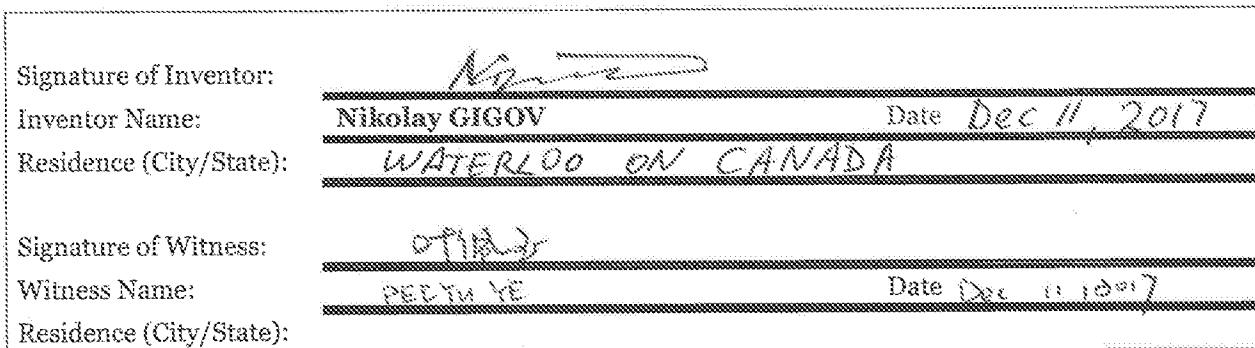 Signature of Inventor:
Inventor Name: Nikolay GIGOV Date Dec 11, 2017
Residence (City/State): WATERLOO ON CANADA
Signature of Witness:
Witness Name: YE Date Dec 11
Residence (City/State):